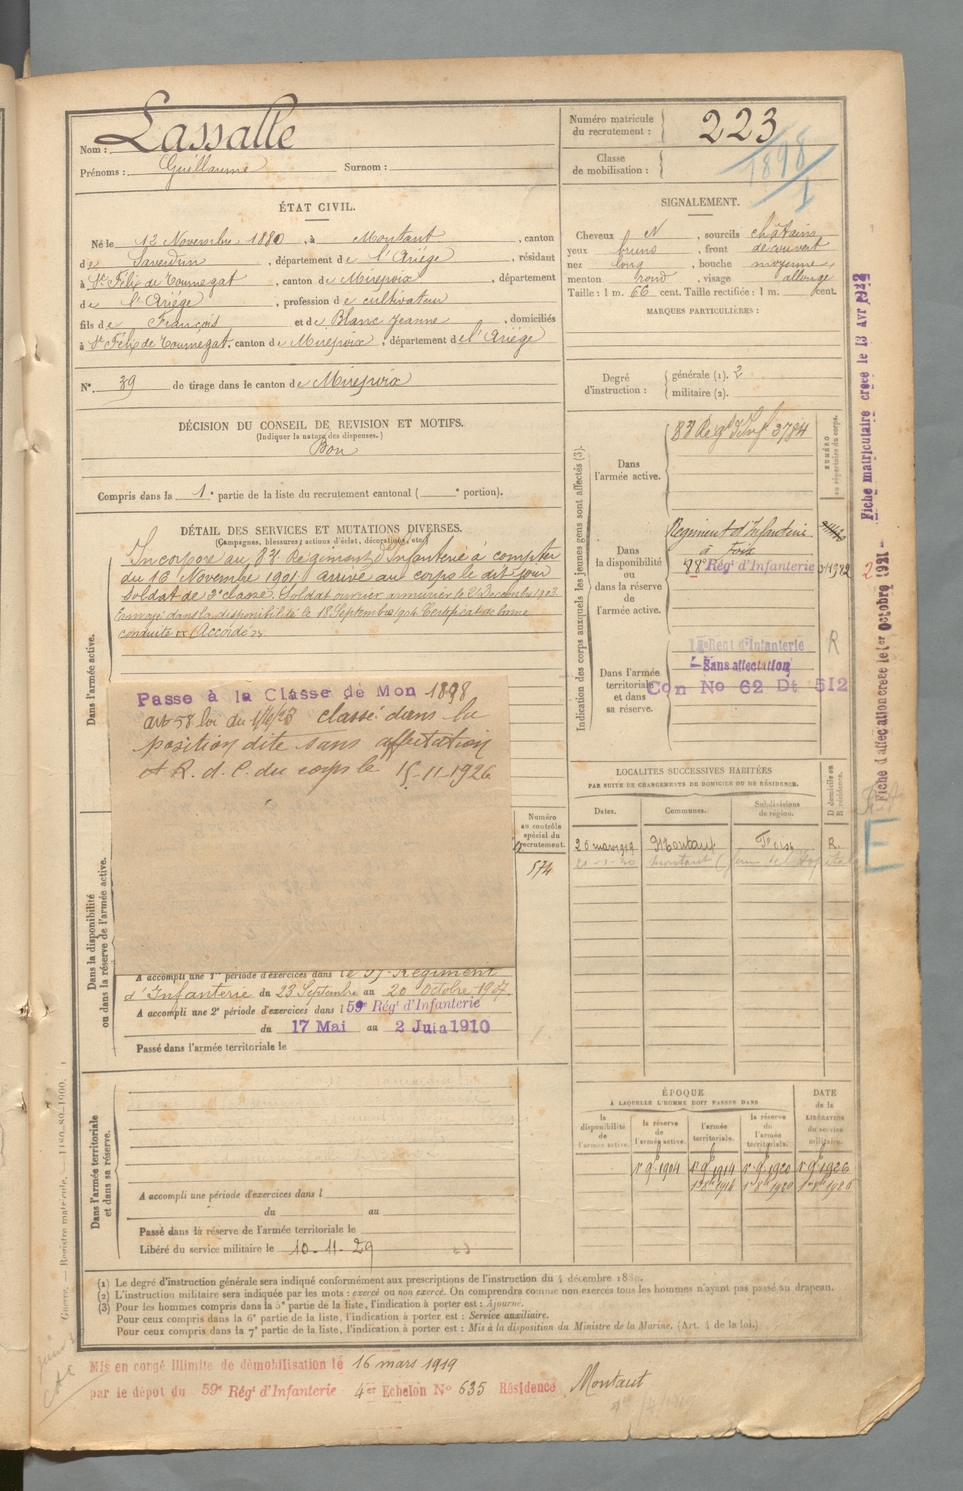 Nom : Lassalle
Prénoms : Guillaume Surnom :
Numéro matricule du recrutement : 223
Classe de mobilisation : 1898
ÉTAT CIVIL.
Né le 12 Novembre 1880, à Montaut, canton
de Saverdun, département de l'Ariége, résidant
à St Félix de Tournegat, canton de Mirepoix, département
de l'Ariége, profession de cultivateur
fils de François et de Blanc Jeanne, domiciliés
à St Félix de Tournégat, canton de Mirepoix, département de l'Ariége
N° 39 de tirage dans le canton de Mirepoix
SIGNALEMENT.
Cheveux N, sourcils châtains
yeux bruns, front découvert
nez long, bouche moyenne
menton rond, visage allongé
Taille : 1 m. 66 cent. Taille rectifiée : 1 m. cent.
MARQUES PARTICULIÈRES :
Degré d'instruction : générale (1). 2
militaire (2).
DÉCISION DU CONSEIL DE REVISION ET MOTIFS.
(Indiquer la nature des dispenses.)
Bon
Compris dans la 1e partie de la liste du recrutement cantonal ( e portion).
DÉTAIL DES SERVICES ET MUTATIONS DIVERSES.
(Campagnes, blessures, actions d'éclat, décorations, etc.)
Incorporé au 83e Régiment d'Infanterie à compter
du 16 Novembre 1901 arrivé au corps le dit jour
Soldat de 2e classe. Soldat ouvrier armurier le 21 Décembre 1903
Envoyé dans la disponibilité le 18 Septembre 1904 Certificat de bonne
conduite "Accordé"
Dans l'armée active.
Passé à la Classe de Mon 1898
art 58 loi du classé dans la
position dite sans affectation
et R. d. C. du corps le 15-11-1926
Dans la disponibilité ou dans la réserve de l'armée active.
Numéro au contrôle spécial du recrutement.
574
A accompli une 1re période d'exercices dans le 59e Régiment
d'Infanterie du 23 Septembre au 20 Octobre 1907
A accompli une 2e période d'exercices dans l 59e Régt d'Infanterie
du 17 Mai au 2 Juin 1910
Passé dans l'armée territoriale le
Dans l'armée territoriale et dans sa réserve.
A accompli une période d'exercices dans l
du au
Passé dans la réserve de l'armée territoriale le
Libéré du service militaire le 10-11-29
Indication des corps auxquels les jeunes gens sont affectés (3).
NUMÉRO au répertoire du corps.
Dans l'armée active.
83e Regt d'Inf 3784
Dans la disponibilité ou dans la réserve de l'armée active.
Régiment d'Infanterie
à Foix
Régt d'Infanterie
Dans l'armée territoriale et dans sa réserve.
Régt d'Infanterie
Sans affectation
Con No 62 Dt 512
R
LOCALITÉS SUCCESSIVES HABITÉES
PAR SUITE DE CHANGEMENTS DE DOMICILE OU DE RÉSIDENCE.
Dates. Communes. Subdivisions de région. D domicile ou R résidence.
26 mars 1919 Montaut Foix R.
Montaut
ÉPOQUE
À LAQUELLE L'HOMME DOIT PASSER DANS
la disponibilité de l'armée active.
la réserve de l'armée active.
l'armée territoriale.
la réserve de l'armée territoriale.
DATE de la LIBÉRATION du service militaire.
1er 9bre 1904 1er 9bre 1914 1er 9bre 1920 1er 9bre 1926
Fiche matriculaire créée le 13 Avr 1942
Fiche d'affectation créée le 1er Octobre 1921
E
Guerre. — Registre matricule.
(1) Le degré d'instruction générale sera indiqué conformément aux prescriptions de l'instruction du 4 décembre 1889.
(2) L'instruction militaire sera indiquée par les mots : exercé ou non exercé. On comprendra comme non exercés tous les hommes n'ayant pas passé au drapeau.
(3) Pour les hommes compris dans la 5e partie de la liste, l'indication à porter est : Ajourné.
Pour ceux compris dans la 6e partie de la liste, l'indication à porter est : Service auxiliaire.
Pour ceux compris dans la 7e partie de la liste, l'indication à porter est : Mis à la disposition du Ministre de la Marine. (Art. 4 de la loi.)
Mis en congé illimité de démobilisation le 16 mars 1919
par le dépôt du 59e Régt d'Infanterie 4er Echelon No 635 Résidence Montaut